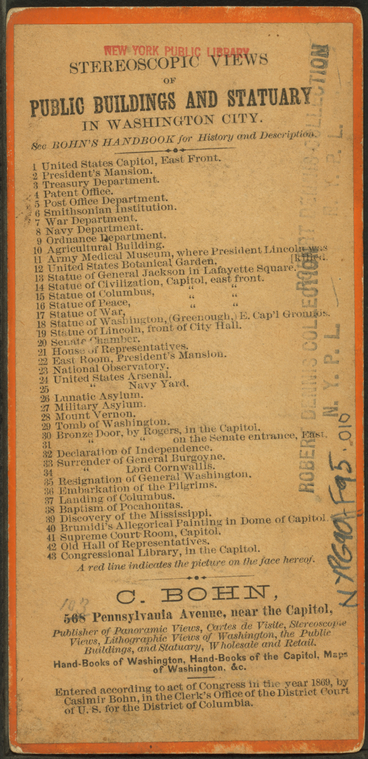 NEW YORK PUBLIC LIBRARY
STEREOSCOPIC VIEWS
OF
PUBLIC BUILDINGS AND STATUARY
IN WASHINGTON CITY.
See BOHN'S HANDBOOK for History and Description.
1 United States Capitol, East Front.
2 President's Mansion.
3 Treasury Department.
4 Patent Office.
5 Post Office Department.
6 Smithsonian Institution.
7 War Department.
8 Navy Department.
9 Ordnance Department.
10 Agricultural Building.
11 Army Medical Museum, where President Lincoln was
12 United States Botanical Garden.
13 Statue of General Jackson in Lafayette Square.
14 Statue of Civilization, Capitol, east front.
15 Statue of Columbus, " "
16 Statue of Peace, " "
17 Statue of War,
18 Statue of Washington, (Greenough,) E. Cap'l Grounds.
19 Statue of Lincoln, front of City Hall.
20 Senate Chamber.
21 House of Representatives.
22 East Room, President's Mansion.
23 National Observatory.
24 United States Arsenal.
25 " Navy Yard.
26 Lunatic Asylum.
27 Military Asylum.
28 Mount Vernon.
29 Tomb of Washington.
30 Bronze Door, by Rogers, in the Capitol.
31 " " on the Senate entrance, East.
32 Declaration of Independence.
33 Surrender of General Burgoyne.
34 " Lord Cornwallis.
35 Resignation of General Washington.
36 Embarkation of the Pilgrims.
37 Landing of Columbus.
38 Baptism of Pocahontas.
39 Discovery of the Mississippi.
40 Brumidi's Allegorical Painting in Dome of Capitol.
41 Supreme Court Room, Capitol.
42 Old Hall of Representatives.
43 Congressional Library, in the Capitol.
A red line indicates the picture on the face hereof.
C. BOHN,
568 Pennsylvania Avenue, near the Capitol,
Publisher of Panoramic Views, Cartes de Visite, Stereoscopic
Views, Lithographic Views of Washington, the Public
Buildings, and Statuary, Wholesale and Retail.
Hand-Books of Washington, Hand-Books of the Capitol, Maps
of Washington, &c.
Entered according to act of Congress in the year 1869, by
Casimir Bohn, in the Clerk's Office of the District Court
of U. S. for the District of Columbia.
ROBERT DENNIS COLLECTION
N. Y. P. L.
NYPG90-F95.010